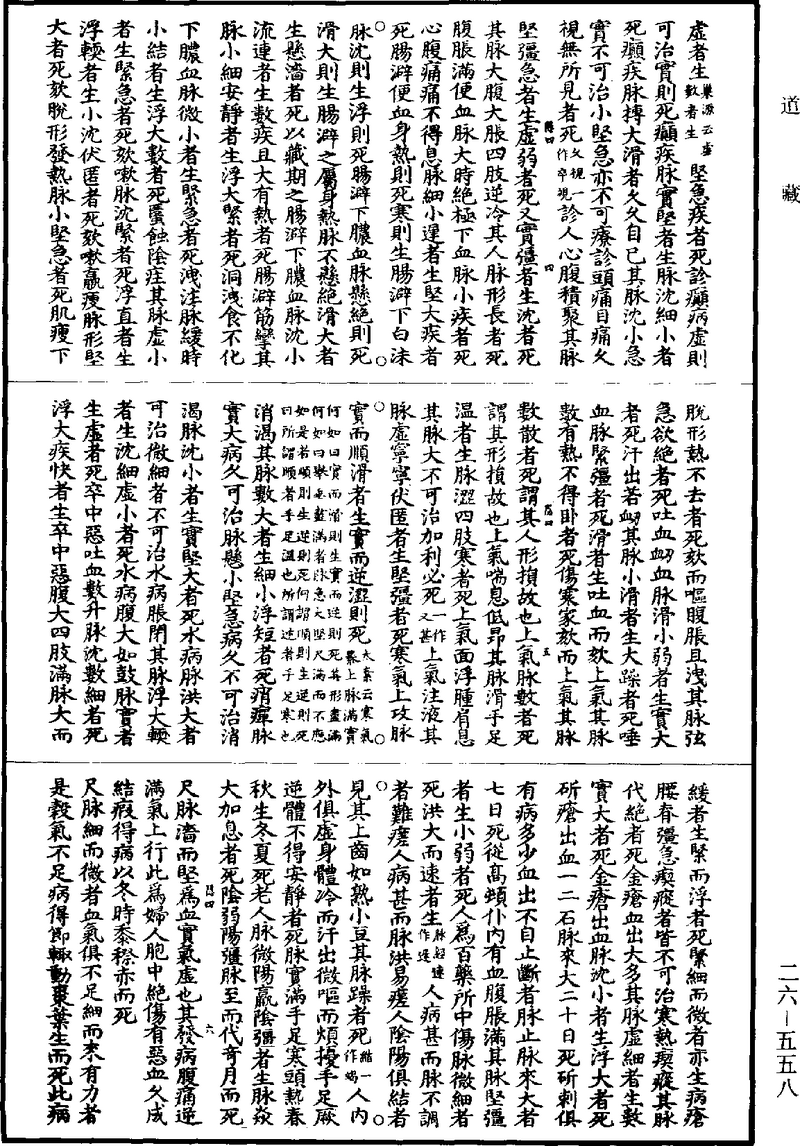 道藏
虛者生巢源云虛數者生堅急疾者死診癲病虛則
可治實則死癲疾脉實堅者生脉沈細小者
死癲疾脉搏大滑者久久自已其脉沈小急
實不可治小堅急亦不可療診頭痛目痛久
視無所見者死久視一作卒視診人心腹積聚其脉
堅彊急者生虛弱者死又實彊者生沈者死
其脉大腹大脹四肢逆冷其人脉形長者死
腹脹滿便血脉大時絕極下血脉小疾者死
心腹痛痛不得息脉細小遲者生堅大疾者
死腸澼便血身熱則死寒則生腸澼下白沫
脉沈則生浮則死腸澼下膿血脉懸絕則死
滑大則生腸澼之屬身熱脉不懸絕滑大者
生懸濇者死以藏期之腸澼下膿血脉沈小
流連者生數疾且大有熱者死腸澼筋攣其
脉小細安靜者生浮大緊者死洞洩食不化
下膿血脉微小者生緊急者死洩注脉緩時
小結者生浮大數者死䘌蝕陰疰其脉虛小
者生緊急者死欬嗽脉沈緊者死浮直者生
浮輭者生小沈伏匿者死欬嗽羸瘦脉形堅
大者死欬脫形發熱脉小堅急者死肌瘦下
脫形熱不去者死欬而嘔腹脹且洩其脉弦
急欲絕者死吐血衂血脉滑小弱者生實大
者死汗出若衂其脉小滑者生大躁者死唾
血脉緊彊者死滑者生吐血而欬上氣其脉
數有熱不得卧者死傷寒家欬而上氣其脉
數散者死謂其人形損故也上氣脉數者死
謂其形損故也上氣喘息低昻其脉滑手足
溫者生脉澀四肢寒者死上氣面浮腫肩息
其脉大不可治加利必死一作又甚上氣注液其
脉虛寧寧伏匿者生堅彊者死寒氣上攻脉
實而順滑者生實而逆澀則死太素云寒氣暴上脉滿實
何如曰實而滑則生實而逆則死其形盡滿
何如曰舉形盡滿者脉急大堅尺滿而不應
如是者順則生逆則死何謂順則生逆則死
曰所謂順者手足溫也所謂逆者手足寒也
消渴其脉數大者生細小浮短者死痟癉脉
實大病久可治脉懸小堅急病久不可治消
渴脉沈小者生實堅大者死水病脉洪大者
可治微細者不可治水病脹閉其脉浮大輭
者生沈細虛小者死水病腹大如鼓脉實者
生虛者死卒中惡吐血數升脉沈數細者死
浮大疾快者生卒中惡腹大四肢滿脉大而
緩者生緊而浮者死緊細而微者亦生病瘡
腰脊彊急瘈瘲者皆不可治寒熱瘈瘲其脉
代絕者死金瘡血出大多其脉虛細者生數
實大者死金瘡出血脉沈小者生浮大者死
斫瘡出血一二石脉來大二十日死斫刺俱
有病多少血出不自止斷者脉止脉來大者
七日死從高頓仆內有血腹脹滿其脉堅彊
者生小弱者死人為百藥所中傷脉微細者
死洪大而速者生脉經速作遲人病甚而脉不調
者難瘥人病甚而脉洪易瘥人陰陽俱結者
見其上齒如熟小豆其脉躁者死結一作竭人內
外俱虛身體冷而汗出微嘔而煩擾手足厥
逆體不得安靜者死脉實滿手足寒頭熱春
秋生冬夏死老人脉微陽羸陰彊者生脉焱
大加息者死陰弱陽彊脉至而代奇月而死
尺脉濇而堅為血實氣虛也其發病腹痛逆
滿氣上行此為婦人胞中絕傷有惡血久成
結瘕得病以冬時黍穄赤而死
尺脉細而微者血氣俱不足細而來有力者
是穀氣不足病得節輒動棗葉生而死此病
二六—五五八